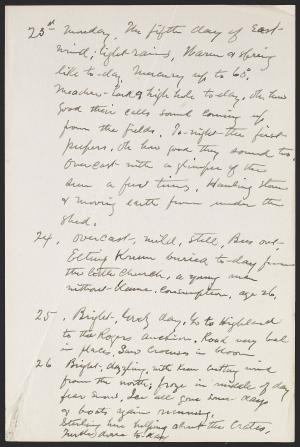 23rd Monday, The fifth day of East-
wind; light rains, Warm & spring
like to-day, Mercury up to 60°.
Meadow-lark & high hole to-day. Oh how
good their calls sound coming up
from the fields. To-night the first
peepers. Oh how good they sound too.
Overcast with a glimpse of the
sun a few times. Hauling stone
& moving earth from under the
shed.
24, Overcast, mild, still, Bees out.
buried to-day from
the little church, a young man
without blame. Consumption, age 26,
25, Bright, lovely day, Go to Highland
to the Rogers auction. Road very bad
in places. Saw crocuses in bloom
26 Bright, dazzling, with keen cutting wind
from the north; froze in middle of day
near snow. Ice all gone some days
& boats again running.
Sterling here helping about the crates,
to-day